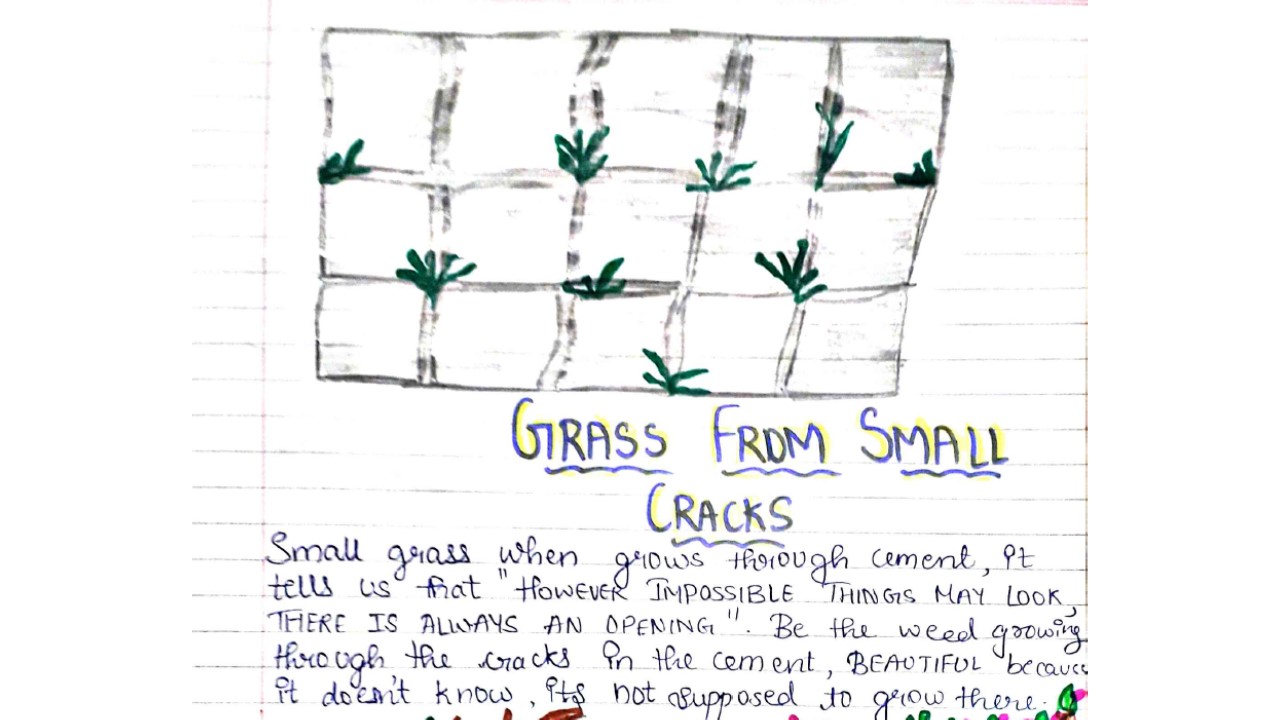 GRASS FROM SMALL
CRACKS
Small grass when grows through cement, it
tells us that "HOWEVER IMPOSSIBLE THINGS MAY LOOK,
THERE IS ALWAYS AN OPENING". Be the weed growing
through the cracks in the cement, BEAUTIFUL because
it doesn't know, its not supposed to grow there.